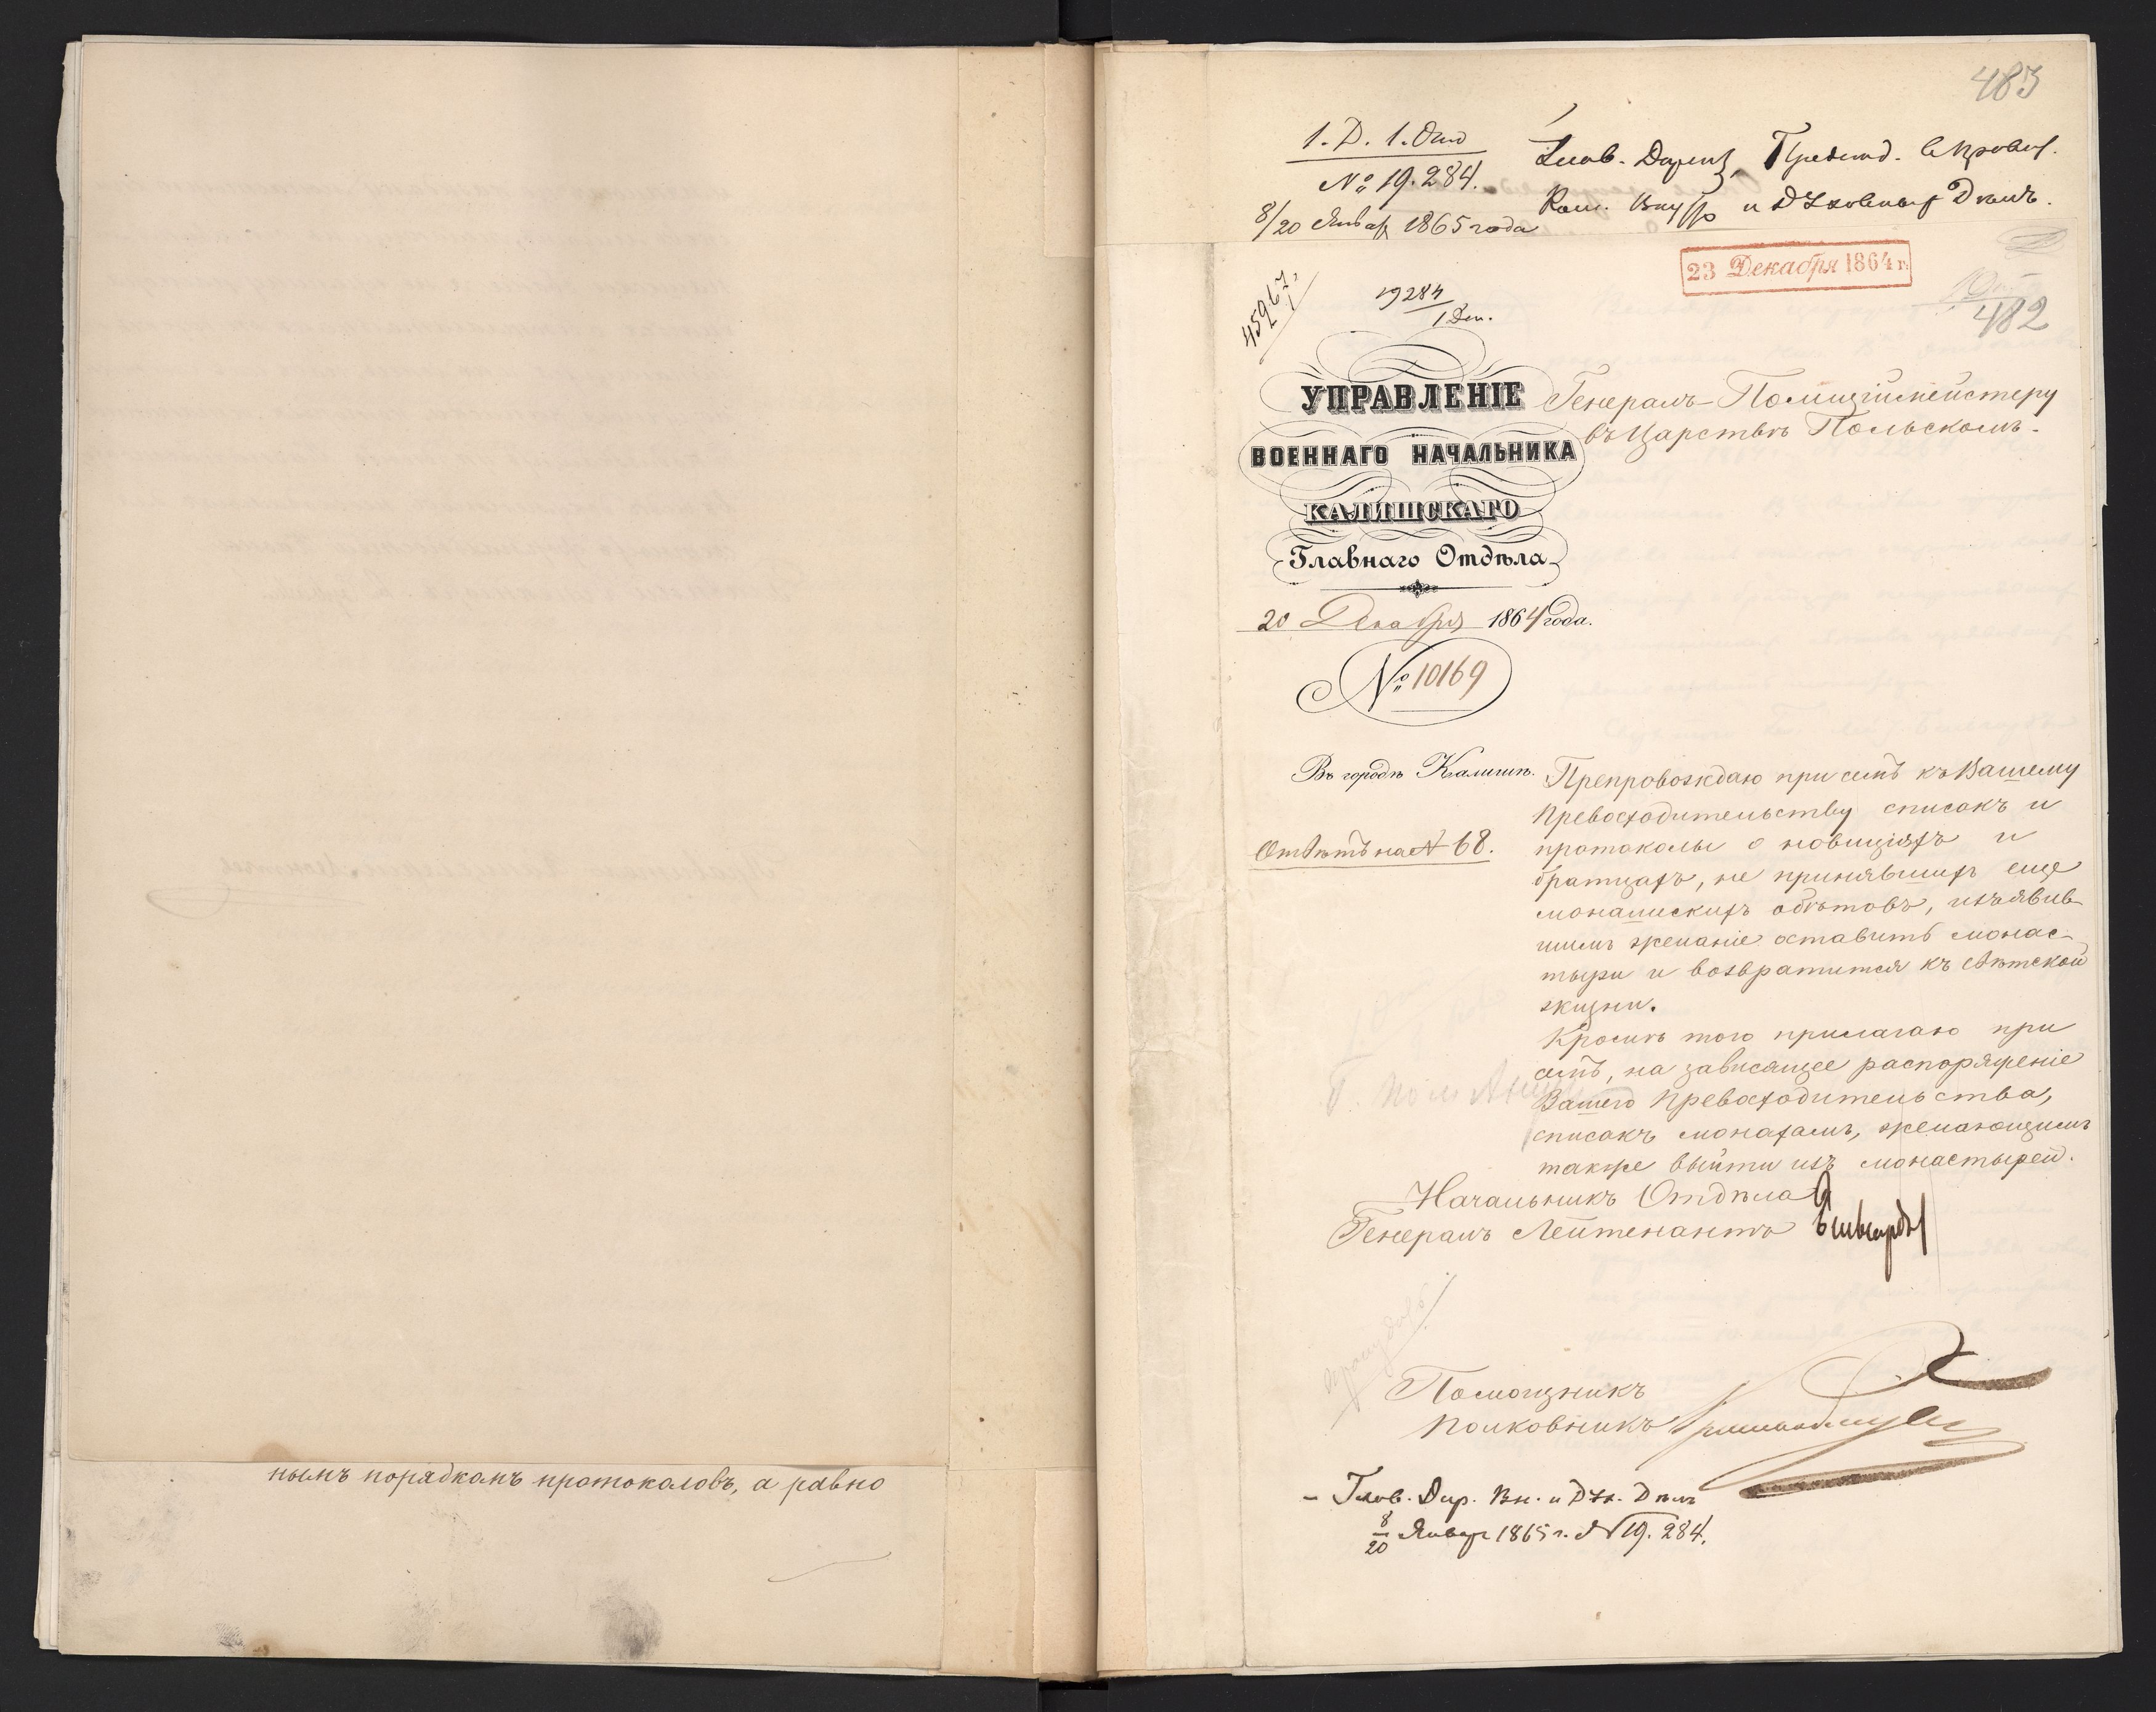 нымъ порядкомъ протоколовъ, а равно
483
1. Д. 1. Отд
№ 19.284.
8/20 Январ 1865 года
Ком. Внутр и Духовныхъ Дѣлъ.
23 Декабря 1864 г.
45967
19284
1 Ден.
482
УПРАВЛЕНІЕ
ВОЕННАГО НАЧАЛЬНИКА
КАЛИШСКАГО
Главнаго Отдѣла
20 Декабря 1864 года.
№ 10169
Въ городѣ Калишѣ.
Отвѣтъ на № 68.
Генералъ-Полиціймейстеру
въ Царствѣ Польскомъ.
Препровождаю при семъ къ Вашему
Превосходительству списокъ и
протоколы о новиціяхъ и
братцахъ, не принявшихъ еще
монашискихъ обѣтовъ, изъявив-
шимъ желаніе оставить монас-
тыри и возвратится къ свѣтской
жизни.
Кромѣ того прилагаю при
семъ, на зависящее распоряженіе
Вашего Превосходительства,
списокъ монахамъ, желающимъ
также выйти изъ монастырей.
Начальникъ Отдѣла
Генералъ Лейтенантъ
Помощникъ
Полковникъ
Глав. Дир. Вн. и Дух. Дѣлъ
8/20 Январ 1865 г. № 19.284.